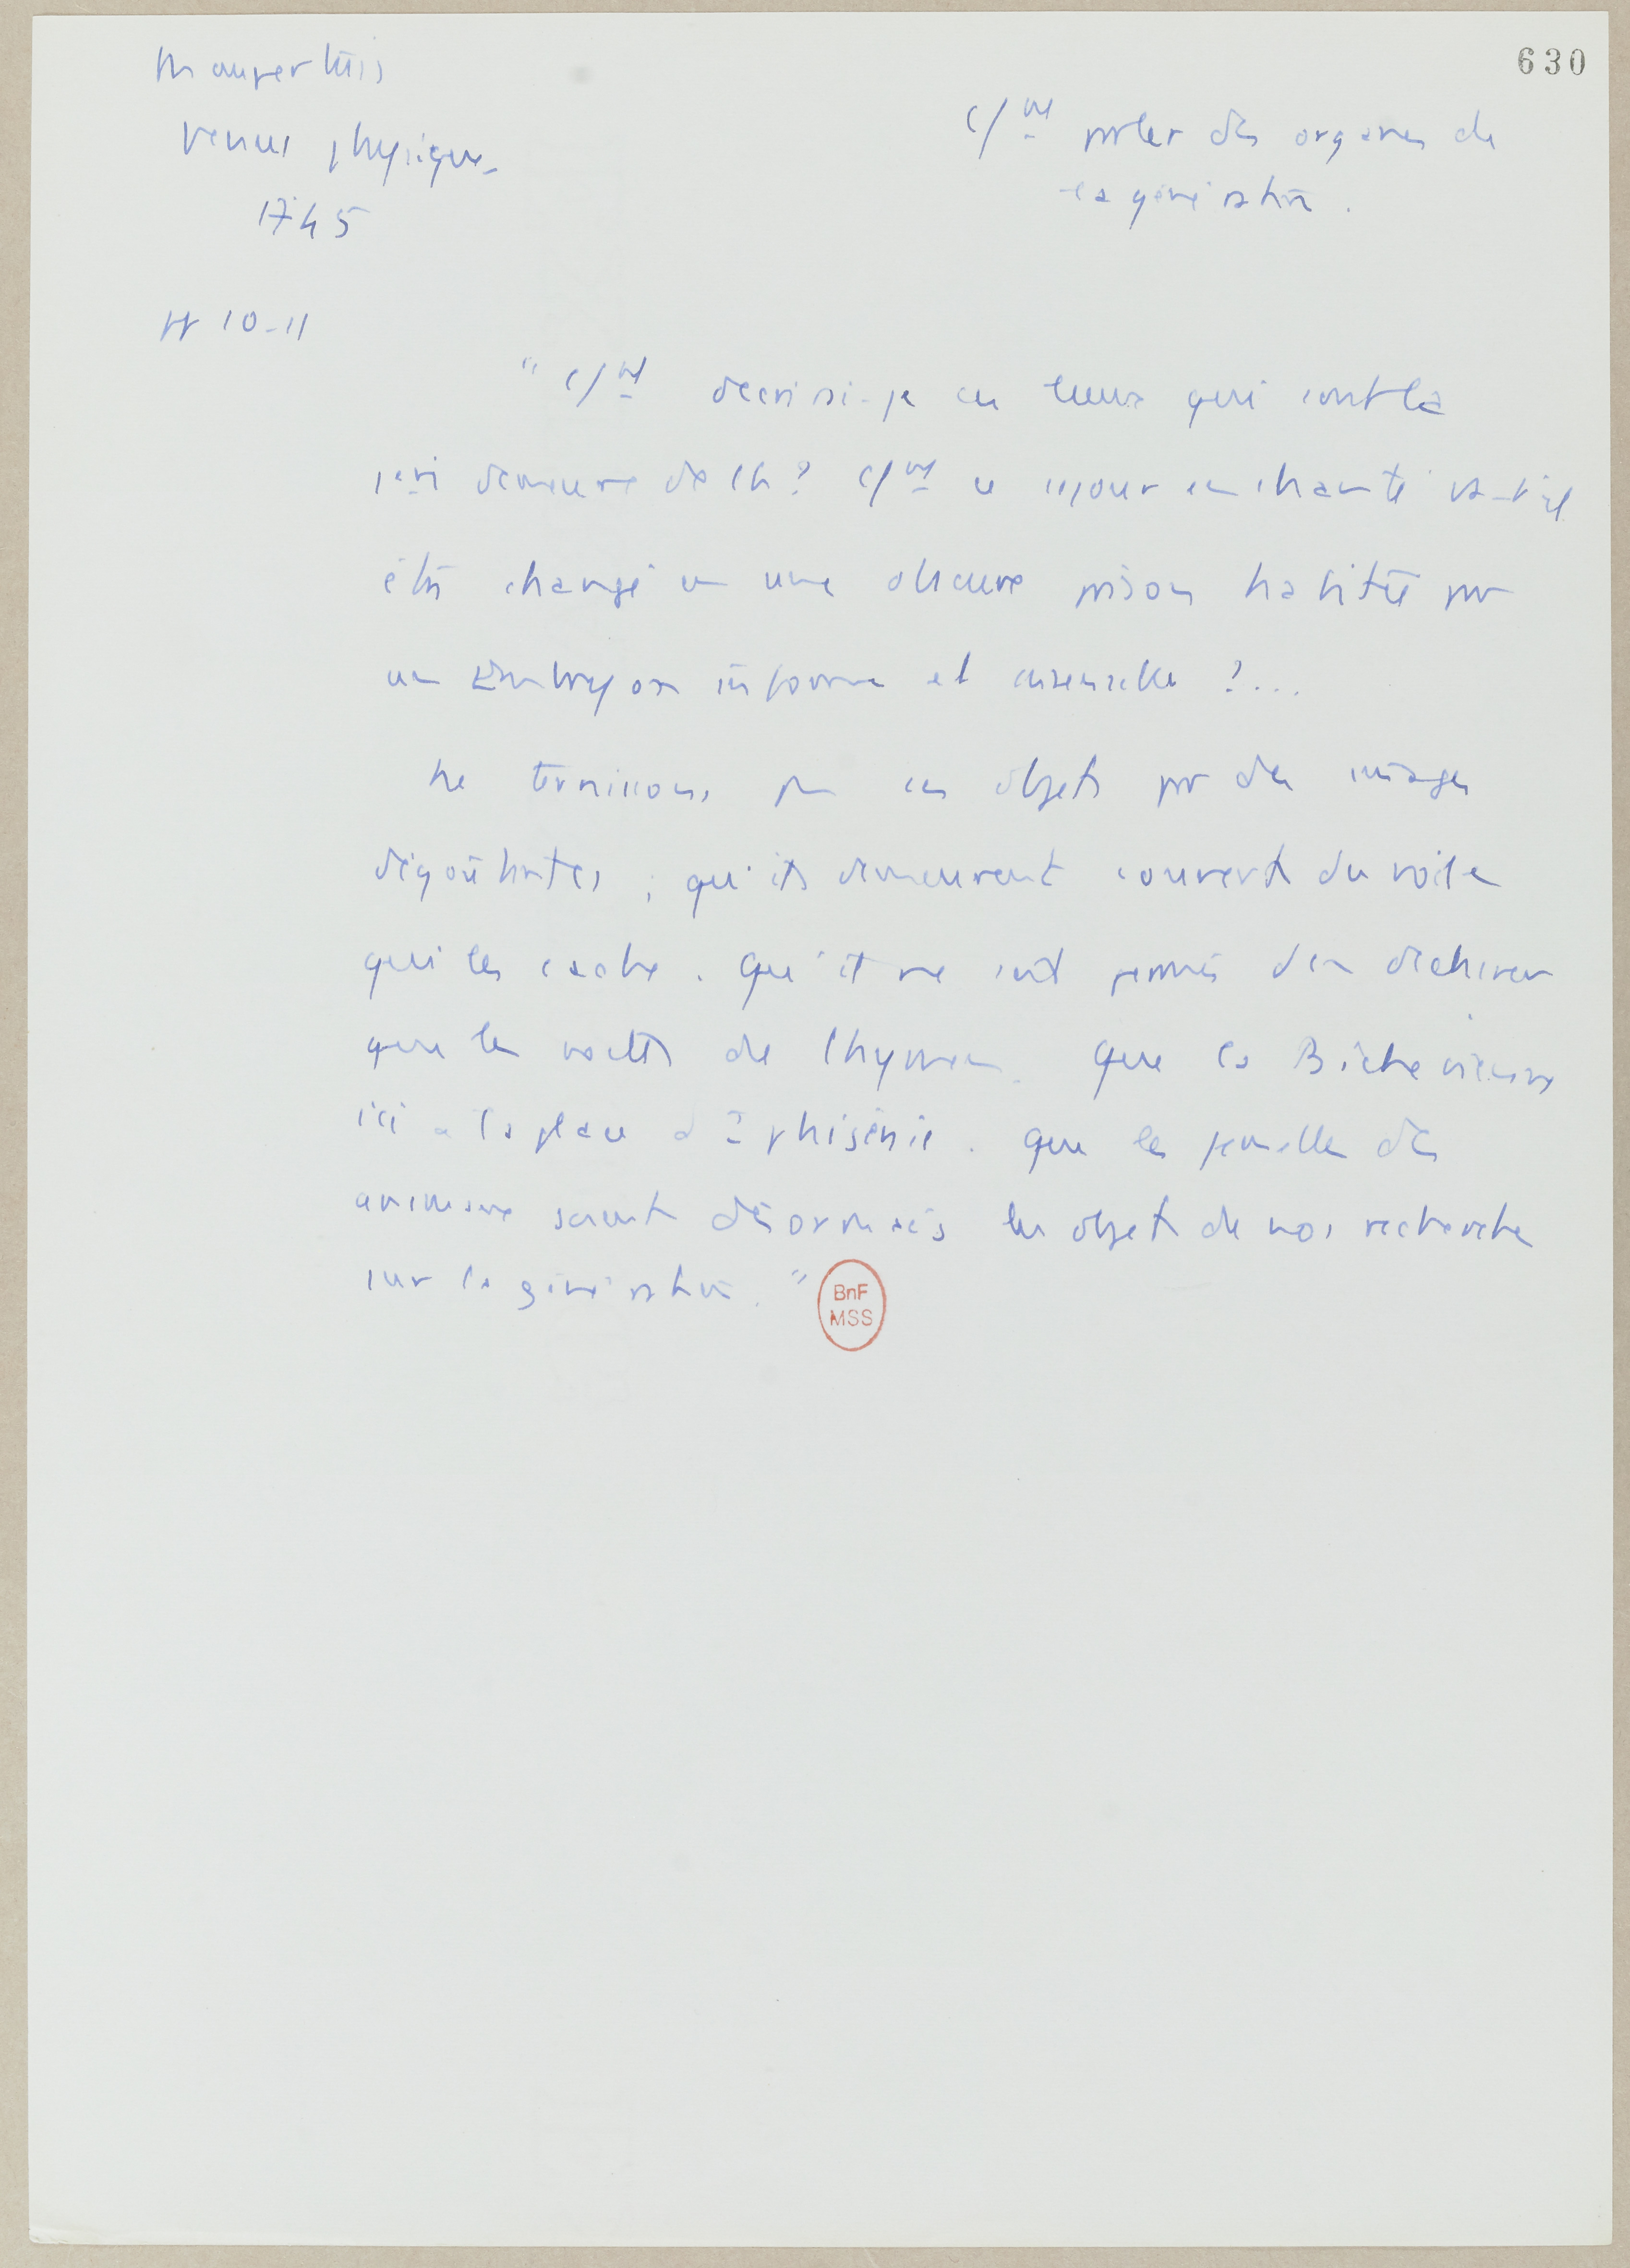 630
Maupertuis
Venus physique
1745
c/nt parler des organes de
la génération.
pp 10-11
" c/nt décrirai-je ces lieux qui sont la
demeure de ch? c/nt ce sejour enchanté va-t-il
être changé en une obscure prison habitée par
un Embryon informe et insensible ?...
Ne ternissons pas ces objets par des images
dégoûtantes ; qu'ils demeurent couverts du voile
qui les cache. Qu'il ne soit permis d'en déchirer
que le voile de l'hymen. Que la Biche vienne
ici à la place d'Iphigénie. Que les femelles des
animaux soient désormais les objets de nos recherches
sur la génération. "
BnF
MSS